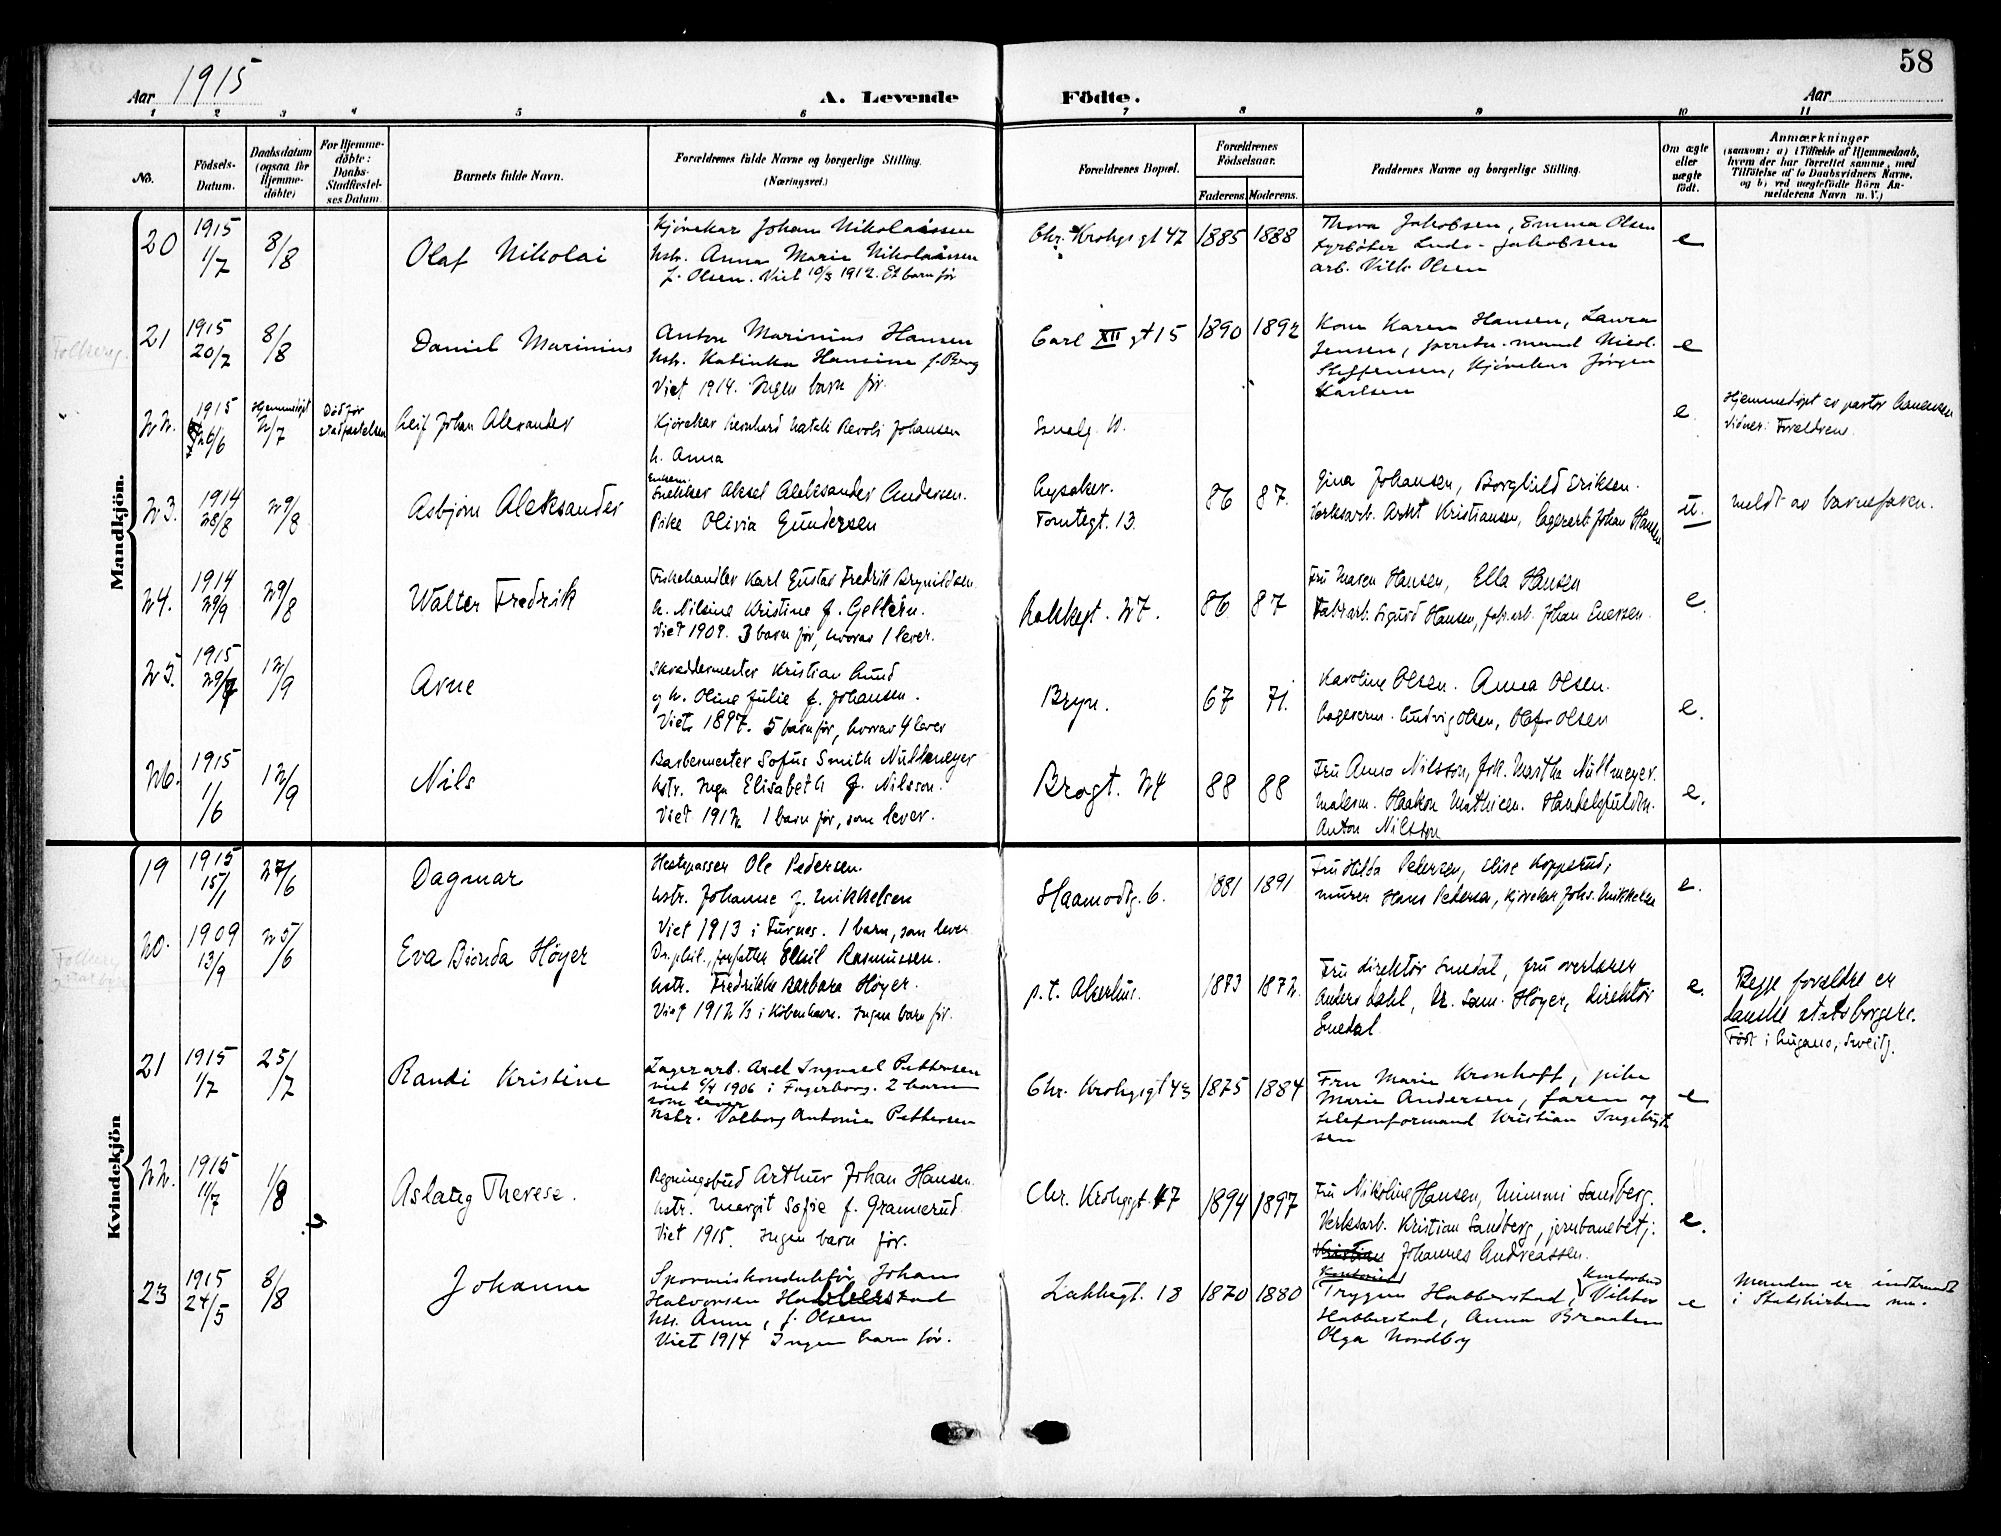 58
Aar 1915
A. Levende Födte.
Aar
1 2 3 4 5 6 7 8 9 10 11
No.
Födsels-Datum.
Daabsdatum (ogsaa for Hjemme-döbte)
For Hjemme-döbte: Daabs-Stadfæstel-ses Datum.
Barnets fulde Navn.
Forældrenes fulde Navne og borgerlige Stilling.
(Næringsvei.)
Forældrenes Bopæl.
Forældrenes Födselsaar.
Faderens. Moderens.
Faddernes Navne og borgerlige Stilling.
Om ægte eller uægte födt.
Anmærkninger
(saasom: a) i Tilfælde af Hjemmedaab,
hvem der har forrettet samme, med
Tilföielse af to Daabsvidners Navne.
og b) ved uægtefödte Börn An-
melderens Navn m. V.)
Mandkjön.
20 1915 1/7 8/8 Olaf Nikolai
Kjørekar Johan Nikolaissen
hstr. Anna Marie Nikolaissen
f. Olsen. Viet 10/3 1912. Et barn før
Chr. Krohgs gt 42 1885 1888
Thora Jakobsen, Emma Olsen
fyrbøter Ludv. Jakobsen
arb. Vilh. Olsen
e
21 1915 20/7 8/8 Daniel Marinius
Anton Marinius Hansen
hstr. Katinka Hansine f. Berg
Viet 1914. Ingen barn før.
Carl XII gt 15 1890 1892
Kone Karen Hansen, Laura
Jensen, forretn.mand Nicol.
Steffensen, Kjørekar Jørgen
Karlsen
e
22. 1915 26/6 Hjemmedøpt 2/7 Død før stadfæstelsen Leif Johan Alexander
Kjørekar Bernhard Natali Revoli Johansen
h. Anna
e.
Hjemmedøpt av pastor
Vidner: Forældrene.
23. 1914 28/8 29/8 Asbjørn Aleksander
Enkem.
Snekker Aksel Aleksander Andersen.
Pike Olivia Gundersen
Lysaker.
Tomtegt. 13.
86 87.
Gina Johansen, Borghild Eriksen.
Verksarb. Arnt Kristiansen, Lagerarb. Johan Hansen
u.
meldt av barnefaren.
24. 1914 29/9 29/8 Walter Fredrik
Fiskehandler Karl Gustav Fredrik Brynildsen.
h. Nilsine Kristine f.
Viet 1909. 3 barn før, hvorav 1 lever.
Lakkegt. 27. 86 87
Fru Maren Hansen, Ella Hansen
Fabr.arb. Sigurd Hansen, fabr.arb. Johan Enersen.
e.
25. 1915 29/7 12/9 Arne
Skreddermester Kristian Lund
og h. Oline Julie f. Johansen.
Viet 1897. 5 barn før, hvorav 4 lever
Bryn. 67 71.
Karoline Olsen. Anna Olsen.
Lagerm. Ludvig Olsen, Olaf Olsen
e.
26. 1915 1/6 12/9 Nils
Barbermester Sofus Smith Nullmeyer
hstr. Inga Elisabeth f. Nilsson.
Viet 1912 1 barn før, som lever.
Brogt. 24 88 88
Fru Anna Nilsson, frk. Martha Nullmeyer.
Malerm. Haakon Mathisen. Handelsfuldm.
Anton Nilsson
e.
Kvindekjön
19 1915 15/1 27/6 Dagmar
Hestepasser Ole Pedersen.
hstr. Johanne f. Mikkelsen
Viet 1913 i Furnes. 1 barn, som lever
Haamodtg. 6. 1881 1891
Fru Hilda Pedersen, Elise Koppsrud,
murer Hans Pedersen, Kjørekar Johs. Mikkelsen
e.
20. 1909 13/9 25/6 Eva Bionda Høyer
Dr. phil., forfatter Emil Rasmussen.
hstr. Fredrikke Barbara Høyer.
Viet 1912 1/3 i København. Ingen barn før.
p.t. Akershus. 1873 1872.
Fru direktør Smedal, fru overlærer
Anders Dahl, Dr. Sam. Høyer, direktør
Smedal
e.
Begge forældre er
danske statsborgere.
Født i Lugano, Sveits.
21 1915 1/7 25/7 Randi Kristine
Lagerarb. Axel Ingvael Pettersen
viet 6/4 1906 i Fagerborg. 2 barn
som lever
hstr. Valborg Antonie Pettersen
Chr. Krohgsgt 43 1875 1884
Fru Marie Kronhoff, pike
Marie Andersen, faren og
telefonformand Kristian Ingebrigt-
sen
e
22. 1915 11/7 1/8 Aslaug Therese.
Regningsbud Arthur Johan Hansen.
hstr. Margit Sofie f. Grannerud.
Viet 1915. Ingen barn før.
Chr. Krohgsgt. 47 1894 1897
Fru Nikoline Hansen, Mimmi Sandberg.
Verksarb. Kristian Sandberg, jernbanebetj.
Kristian Johannes Andreassen.
e.
23 1915 24/5 8/8 Johanne
Sporveiskonduktør Johan
Halvorsen Habberstad
hstr. Anna, f. Olsen
Viet 1914 Ingen barn før.
Lakkegt. 13 1870 1880
Kontorist Kontorbud
Trygve Habberstad, Viktor
Habberstad, Anna Braaten
Olga Nordby
e
Manden er indtraadt
i Statskirken nu.